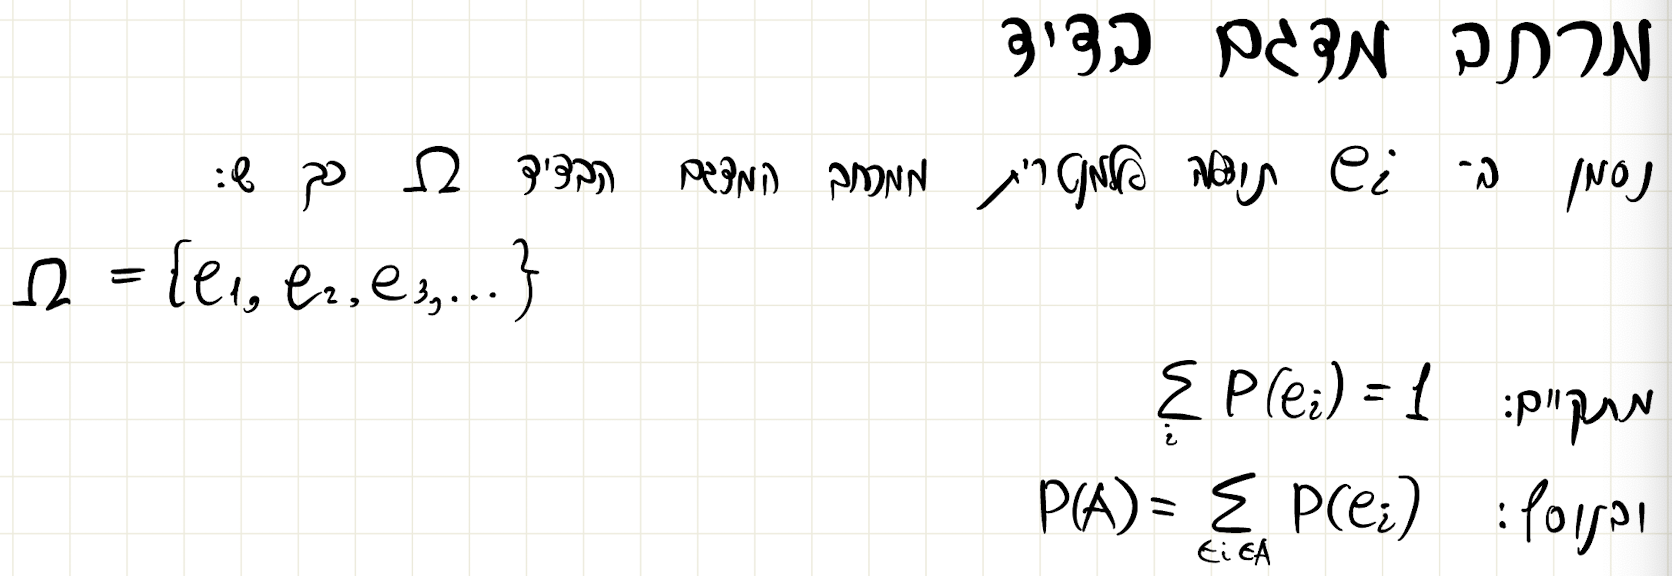 מרחב מדגם בדיד
נסמן ב- eᵢ תוצאה אלמנטרית ממרחב המדגם הבדיד Ω כך ש:
Ω = {e₁, e₂, e₃, ...}
מתקיים: ∑ᵢ P(eᵢ) = 1
ובנוסף: P(A) = ∑_{ϵi ∈A} P(eᵢ)